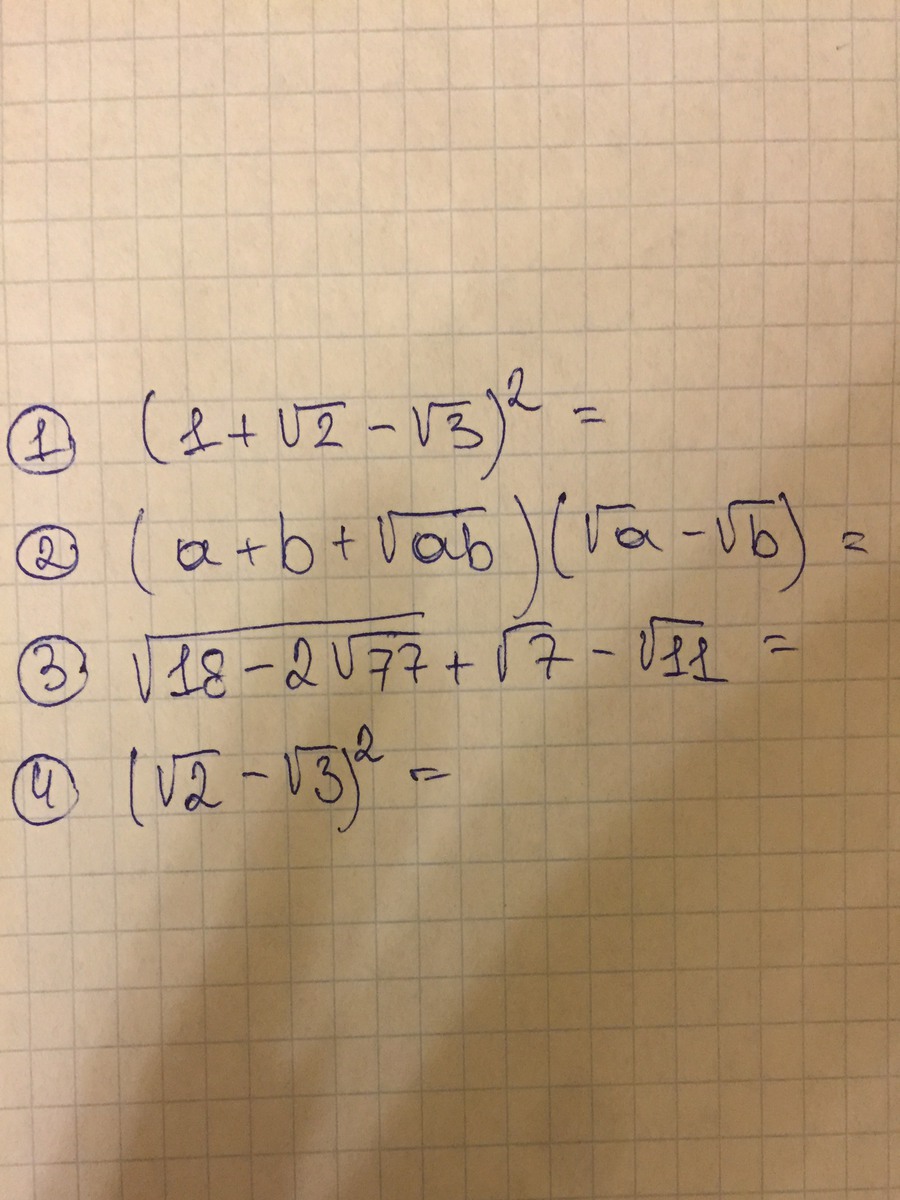 ① (1+√2-√3)² =
② (a+b+√ab)(√a-√b) =
③ √(18-2√77)+√7-√11 =
④ (√2-√3)² =